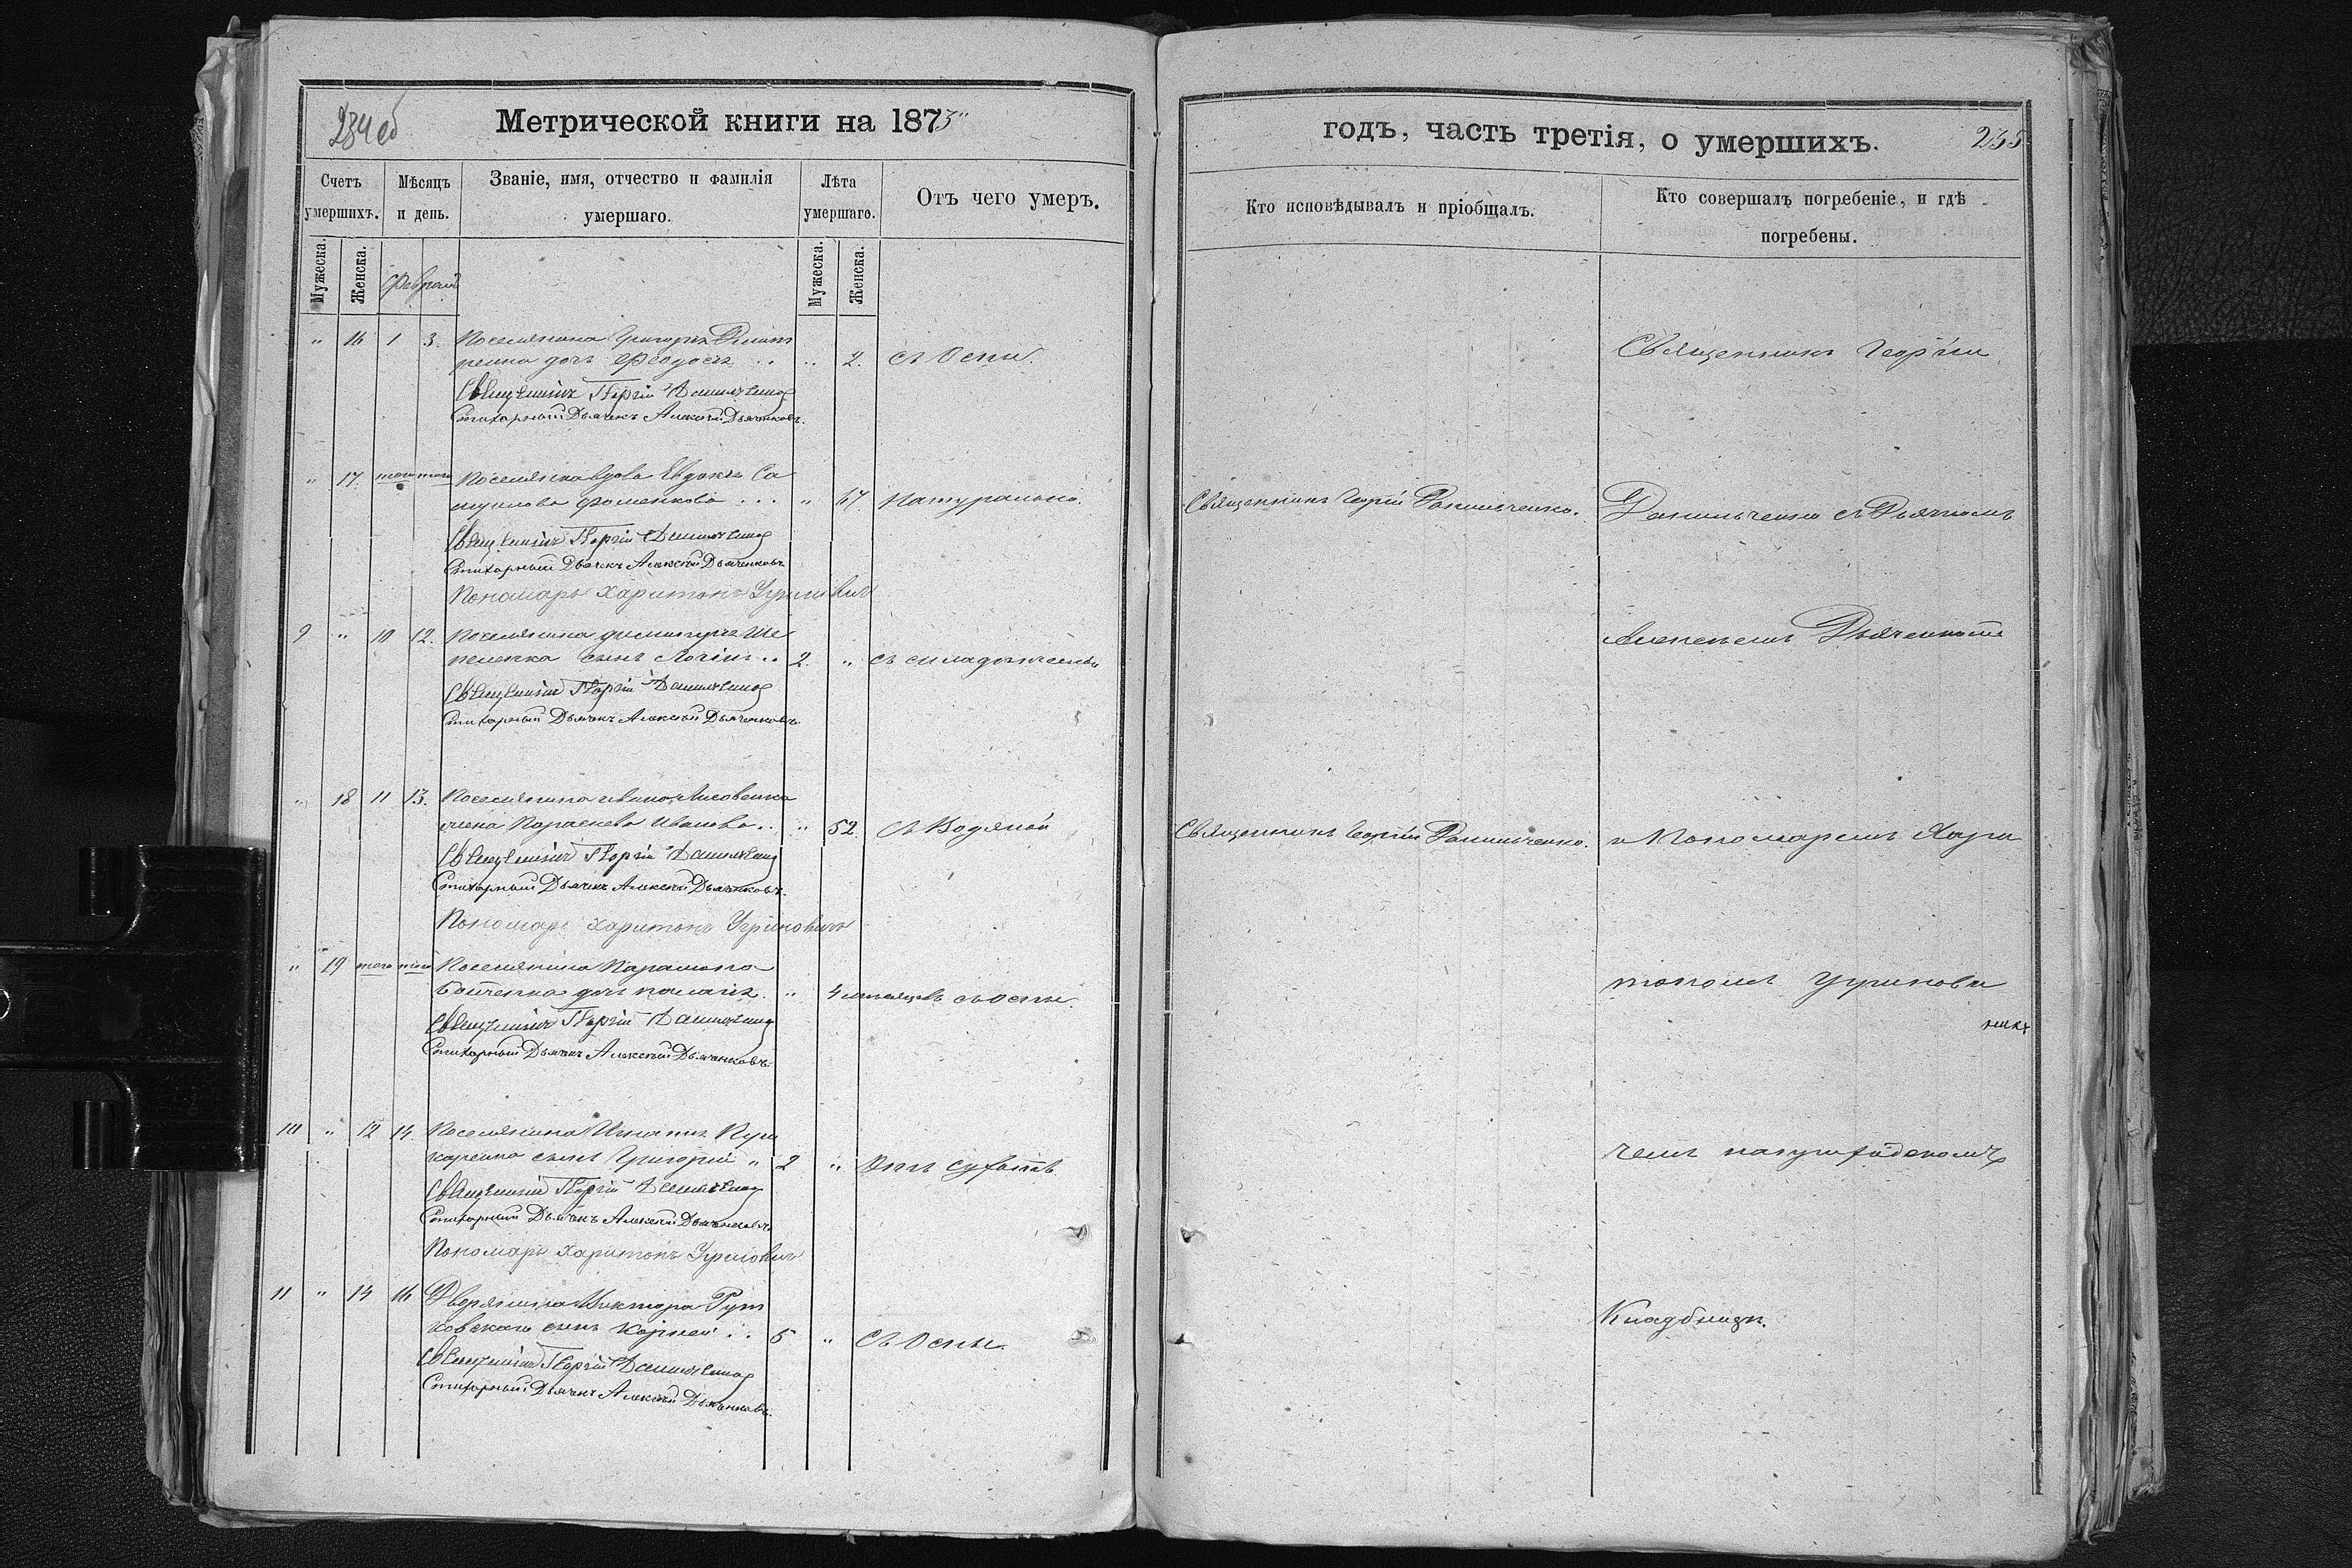 234 об
Метрической книги на 1873
Счетъ умершихъ.
Мѣсяцъ и день.
Званіе, имя, отчество и фамилія умершаго.
Лѣта умершаго.
Отъ чего умеръ.
Мужеска.
Женска.
Февраль
Мужеска.
Женска.
" 16 1 3. Поселянина Григорія
дочь Феодосія .. .. 2. съ Оспи.
Священникъ Георгій Данильченко
Стихарный Дьячекъ Алексѣй Дьяченковъ.
" 17. того того Поселянка вдова Евдокія Са
муилова Фоменкова ... " 67. Натурально.
Священникъ Георгій Данильченко
Стихарный Дьячекъ Алексѣй Дьяченковъ
Пономарь Харитонъ Угриновичъ
9 " 10 12. Поселянина
сынъ .. 2. " съ
Священникъ Георгій Данильченко
Стихарный Дьячекъ Алексѣй Дьяченковъ.
" 18 11 13. Поселянина Ивана Лисовенка
жена Параскева Иванова .. " 52. съ Водяной
Священникъ Георгій Данильченко
Стихарный Дьячекъ Алексѣй Дьяченковъ.
Пономарь Харитонъ Угриновичъ
" 19 того того Поселянина Парамона
Бойченка дочь " 4 мѣсяцевъ съ оспы.
Священникъ Георгій Данильченко
Стихарный Дьячекъ Алексѣй Дьяченковъ.
10 " 12 14. Поселянина Игнатія Куш
наренка сынъ Григорій " 2 " Отъ сухотъ
Священникъ Георгій Данильченко
Стихарный Дьячекъ Алексѣй Дьяченковъ
Пономарь Харитонъ Угриновичъ
11 " 14 16 Дворянина Виктора Рут
ковскаго сынъ Корней .. 5 " Съ Оспы.
Священникъ Георгій Данильченко
Стихарный Дьячекъ Алексѣй Дьяченковъ.
годъ, часть третія, о умершихъ.
235
Кто исповѣдывалъ и пріобщалъ.
Кто совершалъ погребеніе, и гдѣ погребены.
Священникъ Георгій
Священникъ Георгій Данильченко.
Данильченко съ Дьячкомъ
Алексѣемъ Дьяченковымъ
Священникъ Георгій Данильченко.
и Пономаремъ Хари
тономъ Угринови
чемъ на приходскомъ
Кладбищѣ.